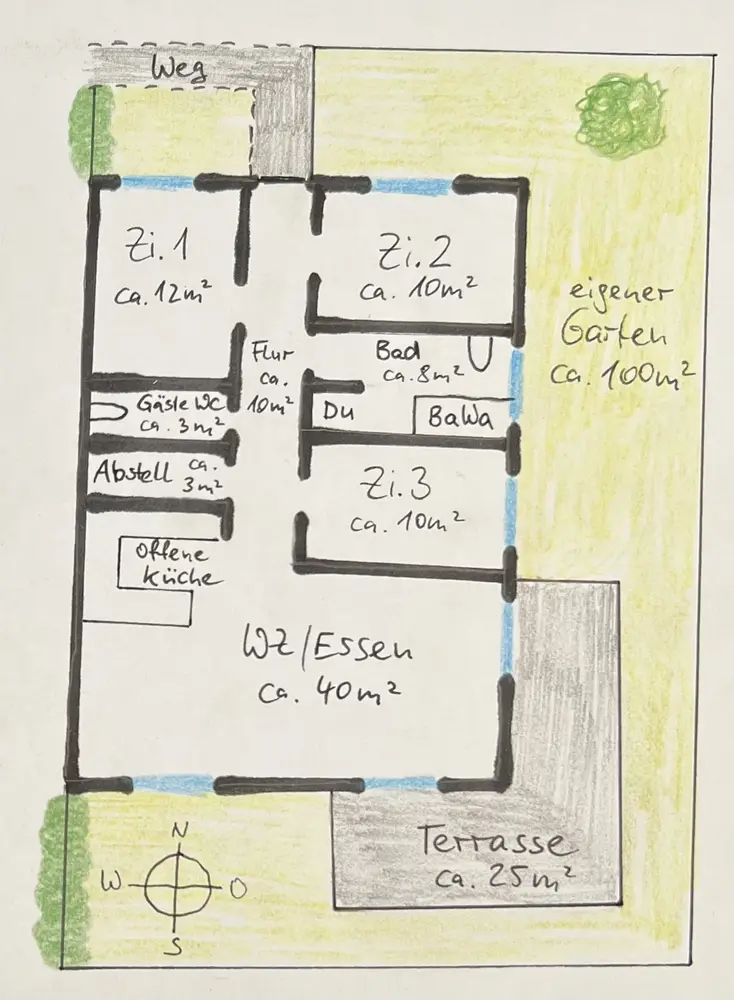 Weg
Zi.1
ca. 12m²
Zi.2
ca. 10m²
eigener
Garten
ca. 100m²
Flur
ca.
10m²
Bad
ca. 8m²
Gäste WC
ca. 3m²
Du
BaWa
Abstell ca.
3m²
Zi.3
ca. 10m²
Offene
Küche
WZ/Essen
ca. 40m²
Terrasse
ca. 25m²
N
W O
S